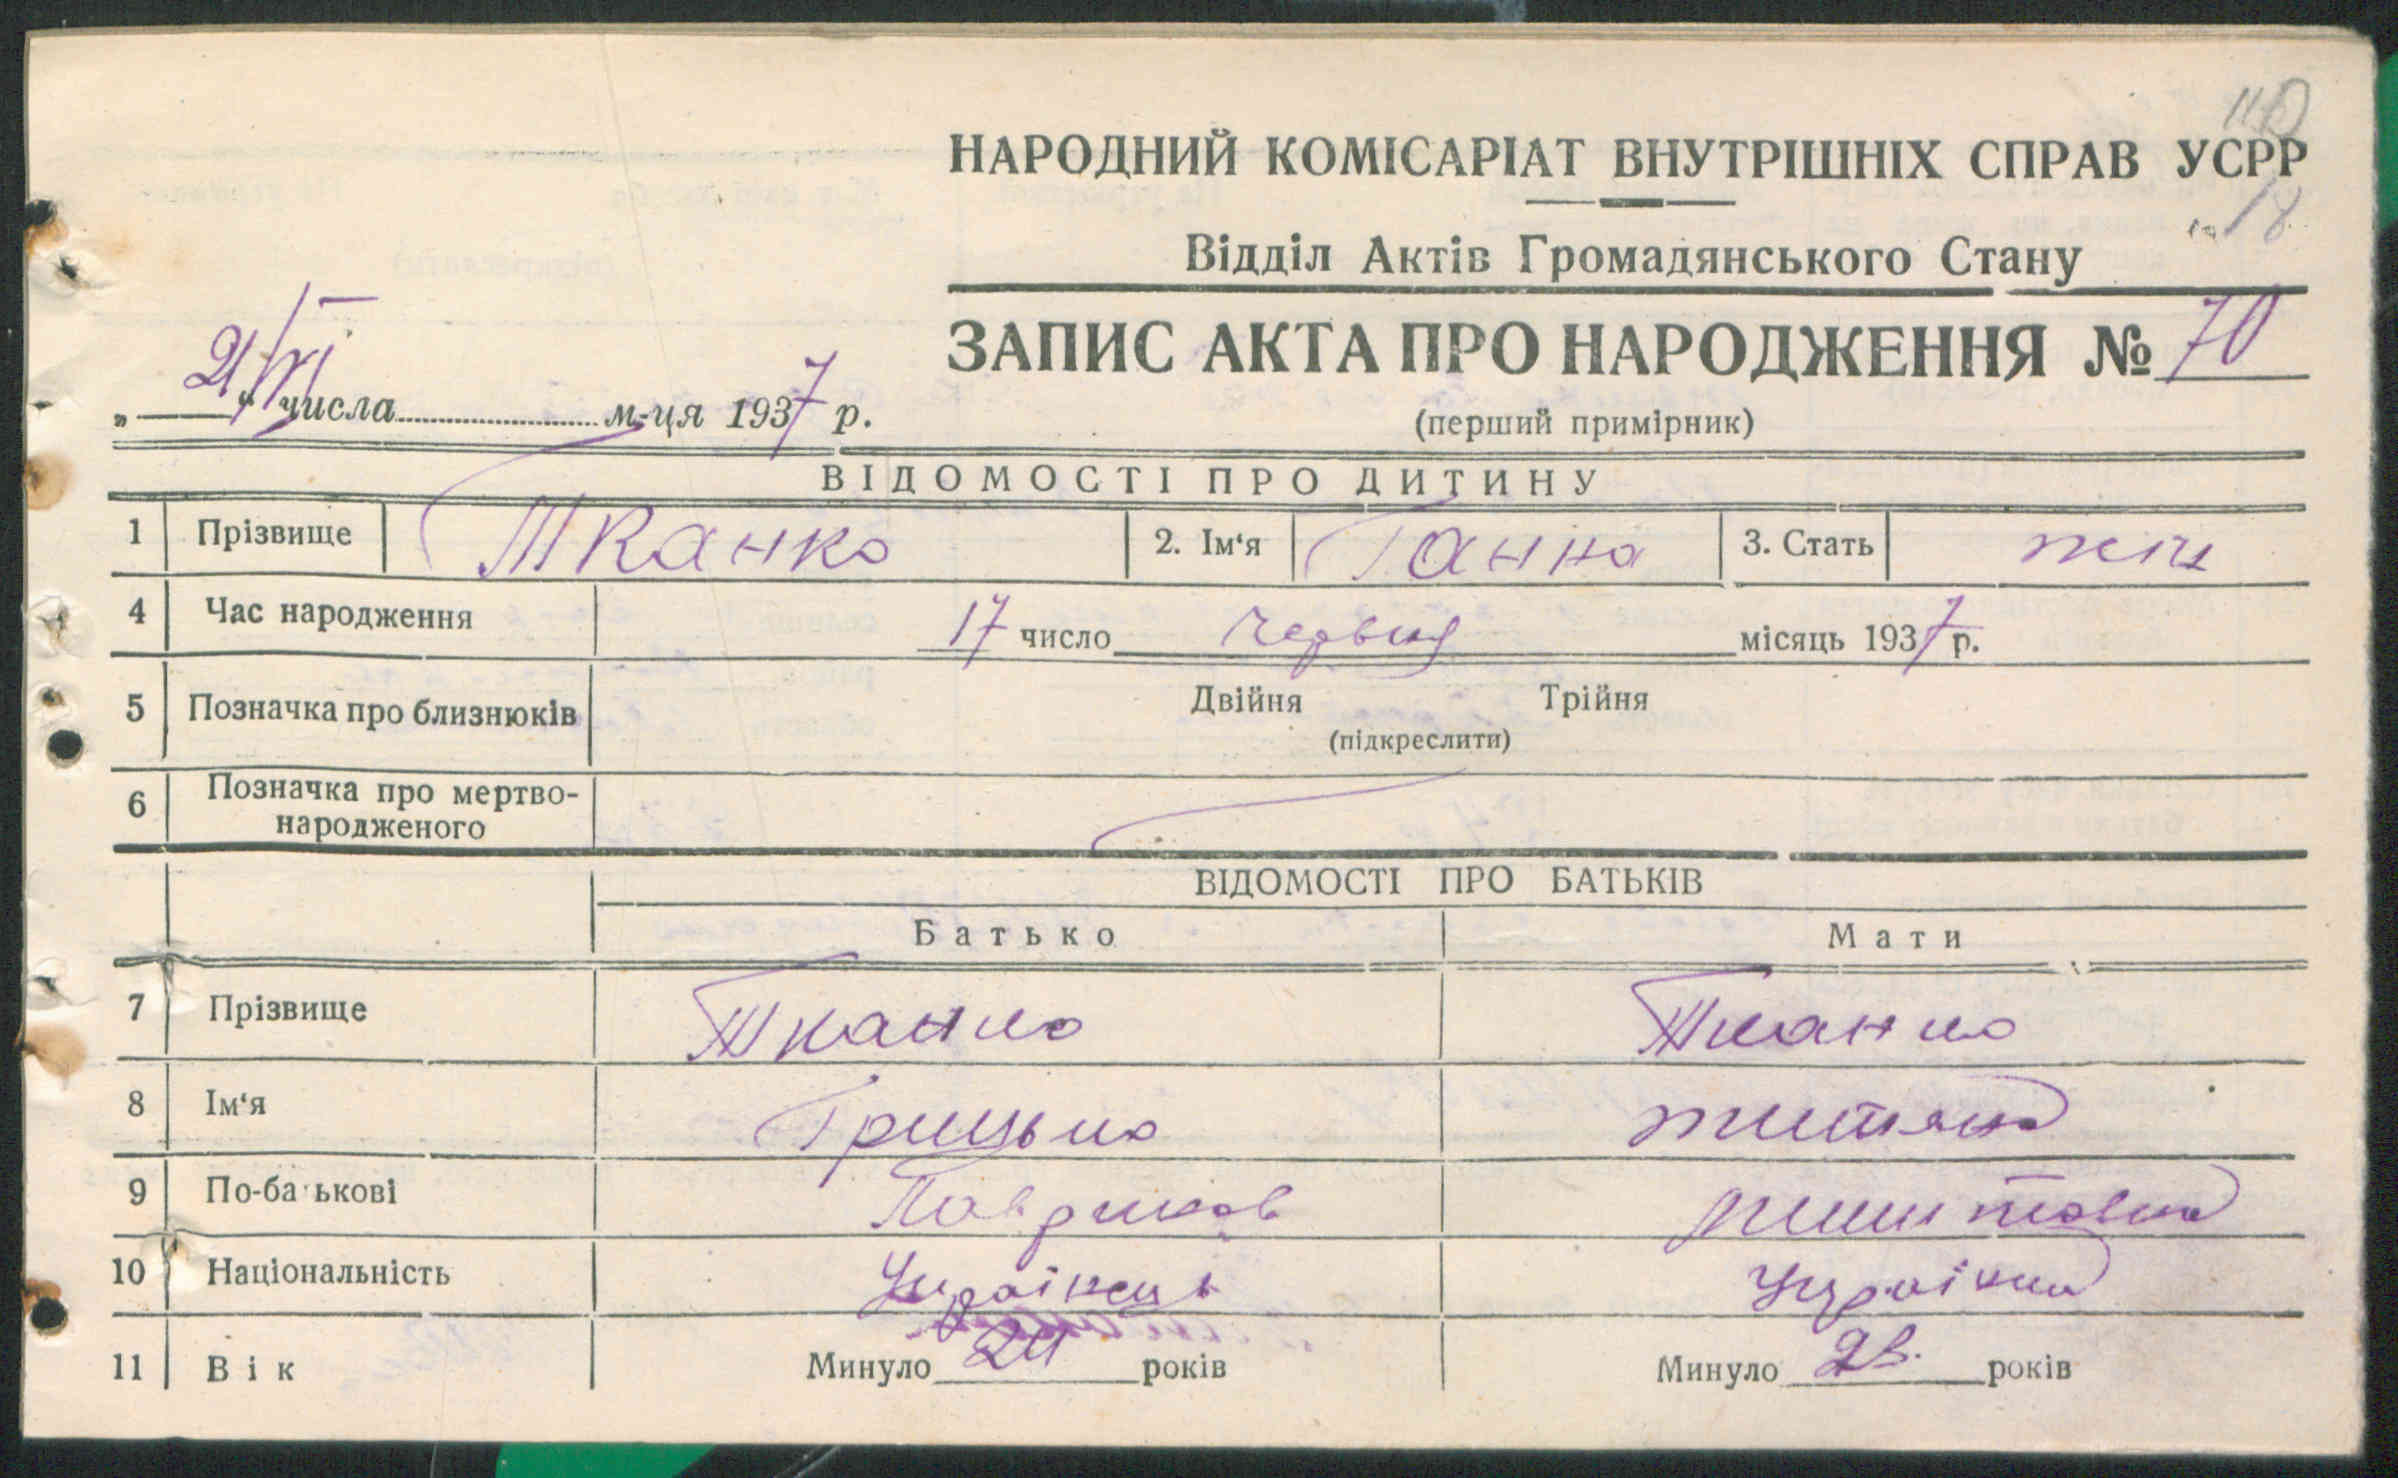 110
НАРОДНИЙ КОМІСАРІАТ ВНУТРІШНІХ СПРАВ УСРР
18
Відділ Актів Громадянського Стану
ЗАПИС АКТА ПРО НАРОДЖЕННЯ № 70
„21/VI“ числа м-ця 1937 р.
(перший примірник)
ВІДОМОСТІ ПРО ДИТИНУ
1 Прізвище Тканко 2. Ім‘я Ганна 3. Стать жін
4 Час народження 17 число Червня місяць 1937 р.
5 Позначка про близнюків Двійня Трійня
(підкреслити)
6 Позначка про мертво-
народженого
ВІДОМОСТІ ПРО БАТЬКІВ
Батько Мати
7 Прізвище Тканко Тканко
8 Ім‘я Грицько
9 По-батькові
10 Національність Українець Українка
11 Вік Минуло 24 років Минуло 23. років